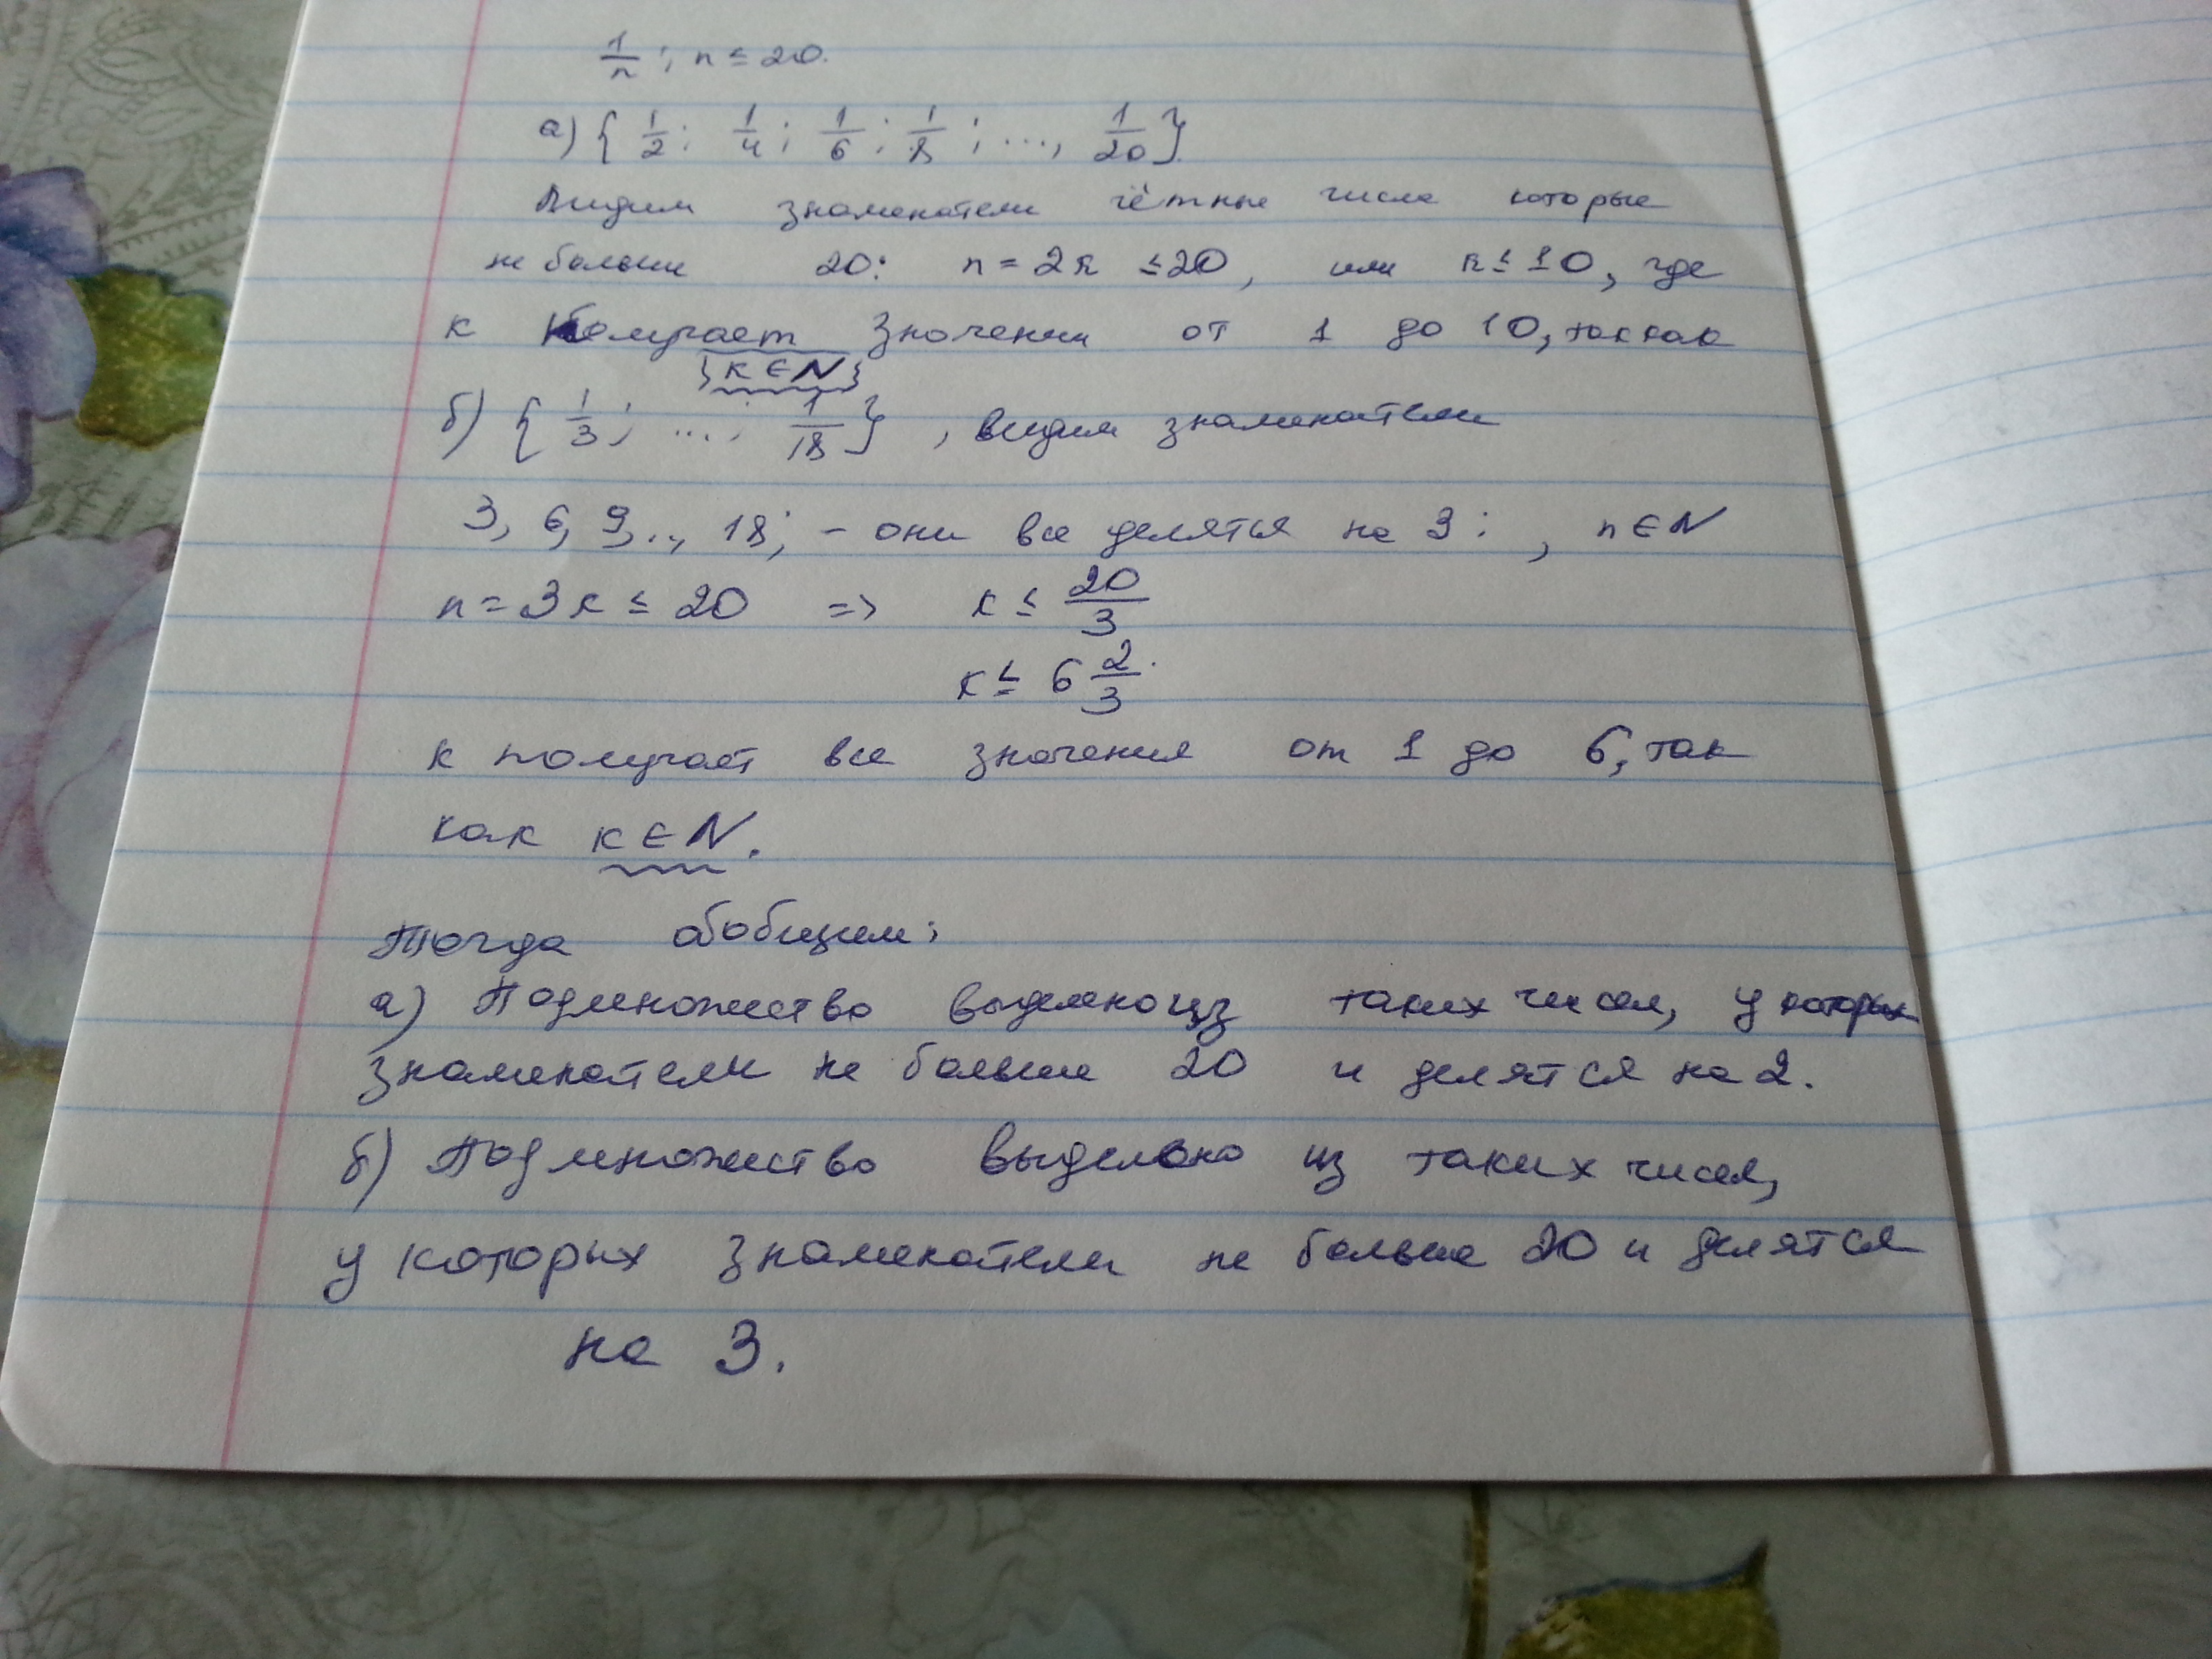 1/n ; n ≤ 20.
а) { 1/2 ; 1/4 ; 1/6 ; 1/8 ; ..., 1/20 }
Видим знаменатели чётные числа которые
не больше 20: n = 2k ≤ 20, или k ≤ 10, где
к получает значения от 1 до 10, так как
{к ∈ N}
б) { 1/3 ; ... ; 1/18 } , видим знаменатели
3, 6, 9, .., 18; – они все делятся на 3 : , n ∈ N
n = 3к ≤ 20 => к ≤ 20/3
к ≤ 6 2/3.
к получает все значения от 1 до 6, так
как к ∈ N.
Тогда обобщим:
а) Подмножество выделено из таких чисел, у которых
знаменатели не больше 20 и делятся на 2.
б) Подмножество выделено из таких чисел,
у которых знаменатели не больше 20 и делятся
на 3.